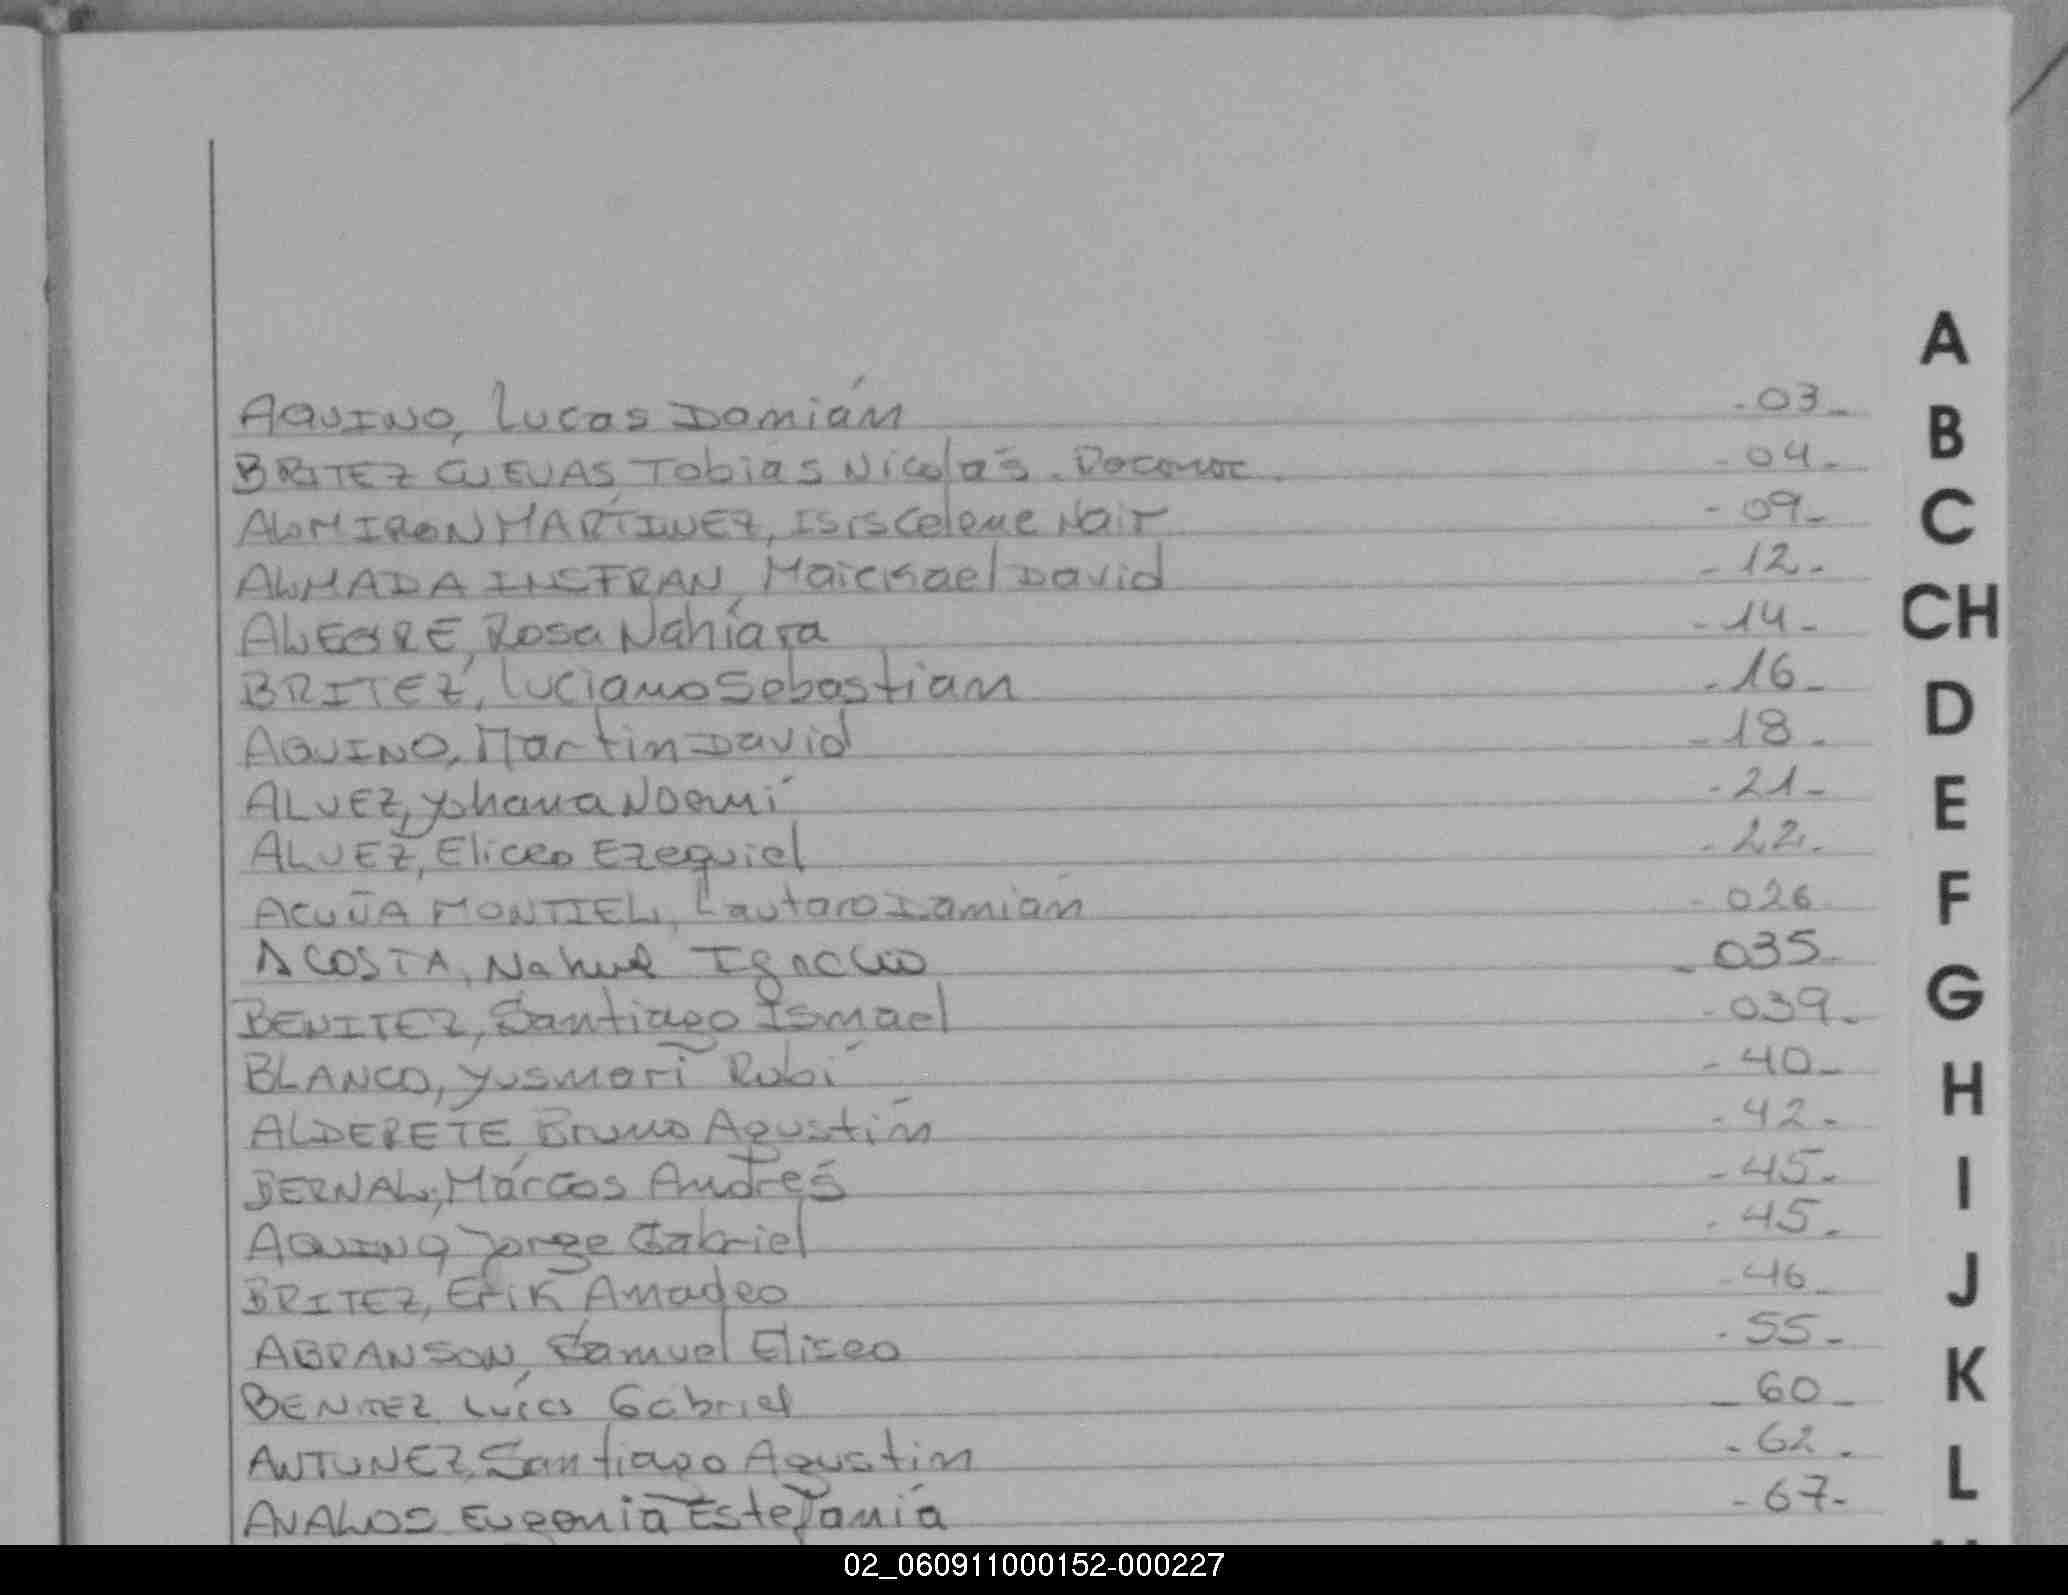 A
B
C
CH
D
E
F
G
H
I
J
K
L
AQUINO, Lucas Damián - 03 -
BRITEZ CUEVAS, Tobias Nicolás. - 04 -
ALMIRON MARTÍNEZ, Isis Celeme Nair - 09 -
ALMADA INSFRAN, Maickael David - 12 -
ALEGRE, Rosa Nahíara - 14 -
BRITEZ, Luciano Sebastian - 16 -
AQUINO, Martin David - 18 -
ALVEZ, Yohana Noemí - 21 -
ALVEZ, Eliceo Ezequiel - 22 -
ACUÑA MONTIEL, Lautaro Damián - 026
ACOSTA, Nahuel Ignacio - 035 -
BENITEZ, Santiago Ismael - 039 -
BLANCO, Yusmari Rubí - 40 -
ALDERETE, Bruno Agustín - 42 -
BERNAL, Márcos Andrés - 45 -
AQUINO, Jorge Gabriel - 45 -
BRITEZ, Erik Amadeo - 46 -
ABRANSON, Samuel Eliseo - 55 -
BENITEZ Gabriel - 60 -
ANTUNEZ, Santiago Agustin - 62 -
AVALOS Eugenia Estefanía - 67 -
02_060911000152-000227